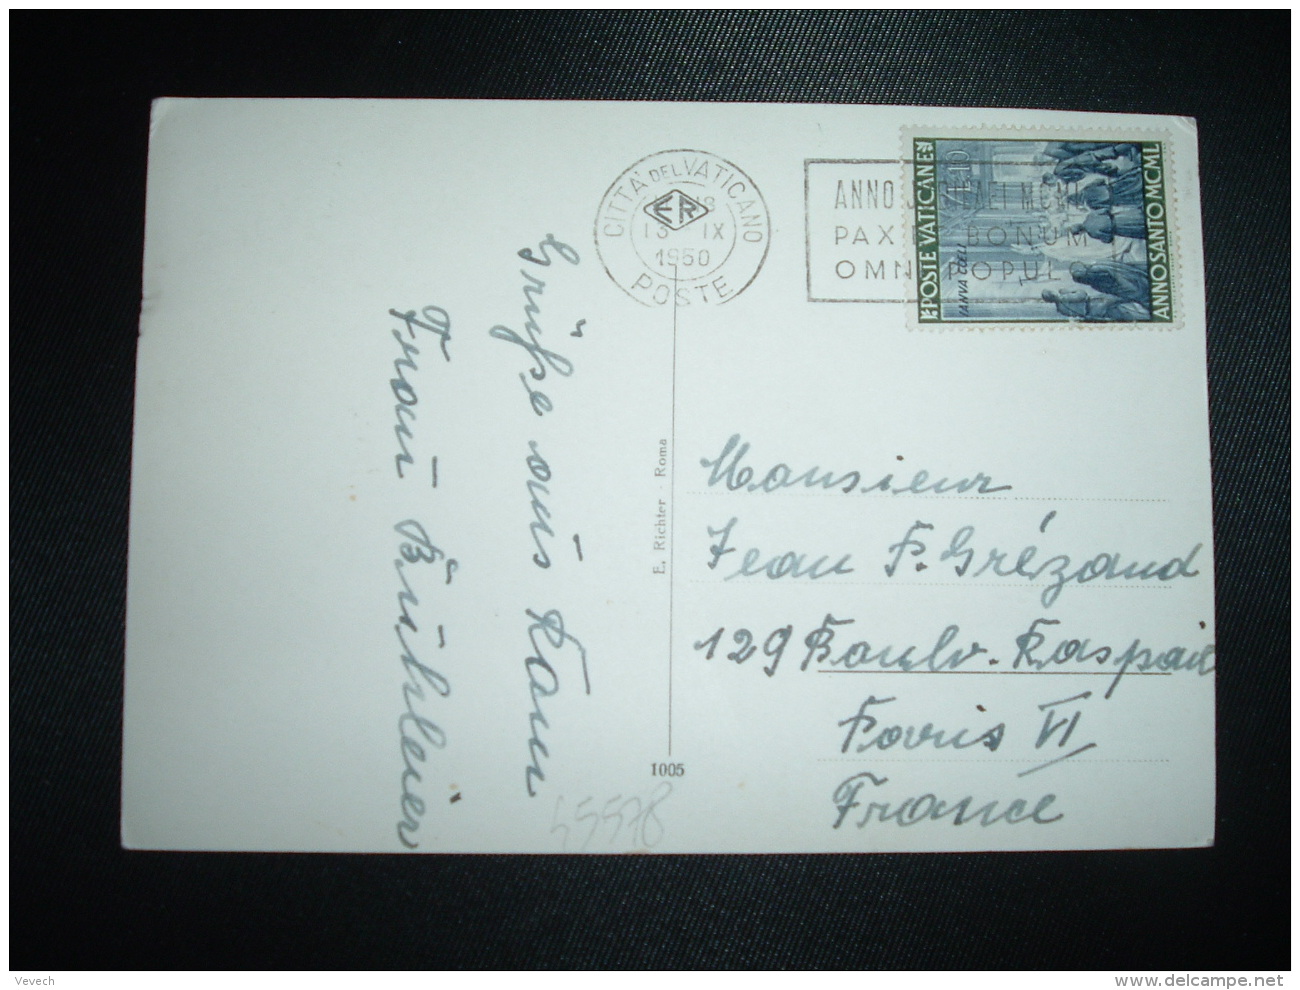 CITTA' DEL VATICANO
ER
13 IX
1950
POSTE
ANNO IUBILAEI MCML
PAX ET BONUM
OMNI POPULO
POSTE VATICANE
L.10
IANVA COELI
ANNO SANTO MCML
Grüße aus Rom
Frau Bühleier
E. Richter - Roma
1005
45578
Monsieur
Jean P. Grézaud
129 Boulv. Raspail
Paris VI
France
Vevech
delcampe.net